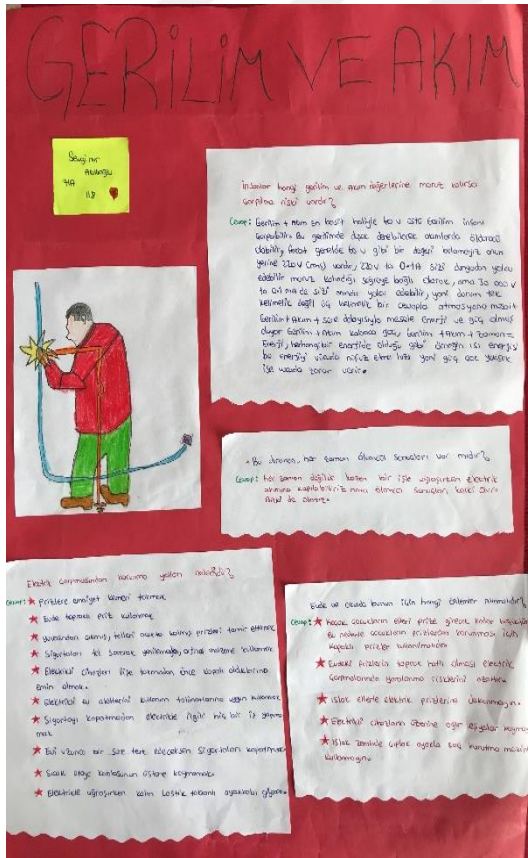 GERİLİM VE AKIM
Sevgi nur
7/A
118
İnsanlar hangi gerilim ve akım değerlerine maruz kalırsa
çarpılma riski vardır?
Cevap: Gerilim + Akım En basit haliyle 50 v üstü Gerilim insanı
çarpabilir. Bu gerilimde düşük
olabilir, fakat genelde 50 v gibi bir değeri bulamayız onun
yerine 220 V (rms) vardır, 220 V 0.1A sizi dünyadan yolcu
edebilir maruz kalındığı süreye bağlı olarak, ama 30 000 V
da sizi yolcu edebilir, yani durum tek
kelimelik değil üç kelimelik bir cevapla
Gerilim + Akım + süre dolayısıyla mesele Enerji ve güç olmuş
oluyor Gerilim + Akım kabaca güç, Gerilim + Akım + Zaman =
Enerji, herhangi bir enerjide olduğu gibi örneğin ısı enerjisi
bu enerjiyi vücuda nüfuz etme hızı yani güç çok yüksek
ise vücuda zarar verir.
• Bu direnco, her zaman ölümcül sonuçları var mıdır?
Cevap: Her zaman değildir bazen bir işle uğraşırken elektrik
akımına kapılabiliriz ama ölümcül sonuçları belki olur
belki de olmaz.
Elektrik çarpmasından korunma yolları nelerdir?
Cevap: ★ Prizlere emniyet kemeri takmak
★ Evde topraklı priz kullanmak
★ Yuvasından çıkmış, telleri açıkta kalmış prizleri tamir ettirmek
★ Sigortaları tel sararak yenilemeyip, orjinal malzeme kullanmak
★ Elektrikli cihazları fişe takmadan önce kapalı olduklarına
emin olmak.
★ Elektrikli ev aletlerini kullanım talimatlarına uygun kullanmak
★ Sigortayı kapatmadan elektrikle ilgili hiç bir iş yapma
mak
★ Evi uzunca bir süre terk edeceksen sigortaları kapatmak
★ Sıcak ütüyü kablosunun üstüne koymamak.
★ Elektrikle uğraşırken kalın lastik tabanlı ayakkabı giymek.
Evde ve okulda bunun için hangi önlemler alınmalıdır?
Cevap: ★ Küçük çocukların elleri prize girecek kadar
Bu nedenle çocukların prizlerden korunması için
kapaklı prizler kullanılmalıdır.
★ Evdeki prizlerin toprak hattı olması elektrik
çarpmalarında yaralanma risklerini azaltır.
★ Islak ellerle elektrik prizlerine dokunmayın.
★ Elektrikli cihazların üzerine ağır eşyalar
★ Islak zeminde çıplak ayakla saç kurutma
kullanmayın.